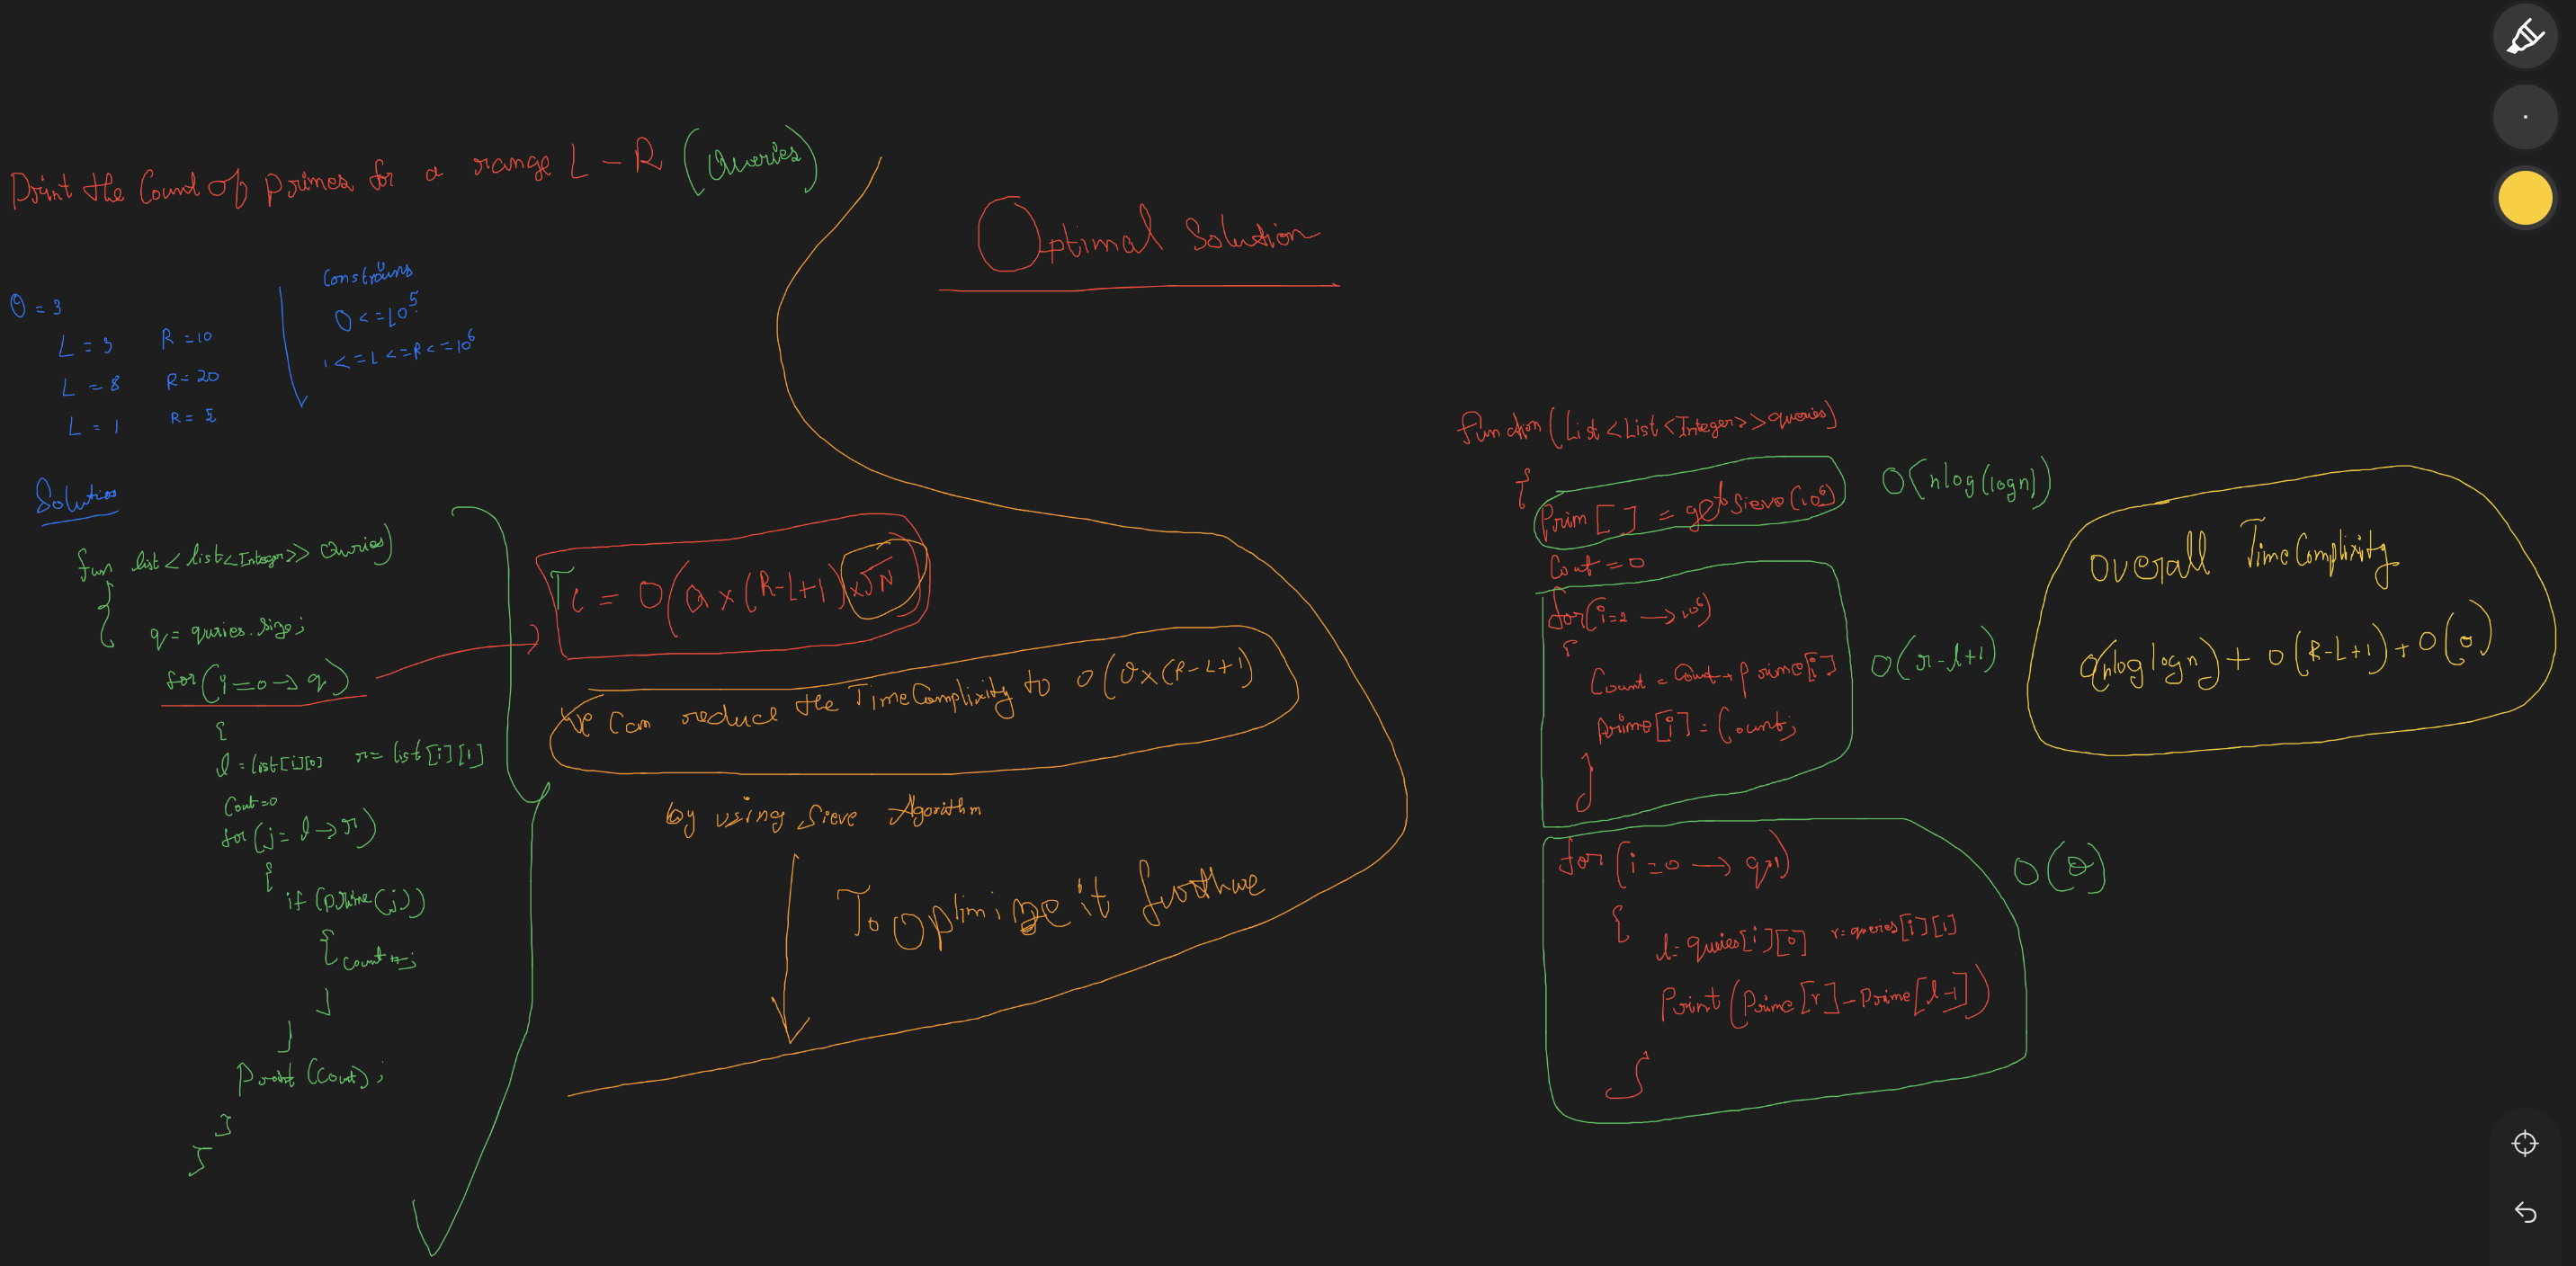 Print the Count of primes for a range L - R (Queries)
Q = 3
L = 3 R = 10
L = 8 R = 20
L = 1 R = 5
Constrains
Q <= 10^5
1 <= L <= R <= 10^6
Solution
fun list<list<Integer>> Quries)
{
q = quries.size;
for(i=0 → q)
{
l = list[i][0] r = list[i][1]
Cout=0
for(j = l → r)
{
if (prime(j))
{
count++;
}
}
Print (Cout);
}
}
TC = O(Q x (R-L+1) x √N
We Can reduce the TimeComplixity to O(Q x (R-L+1)
by using Sieve Agorithm
To optimize it furthue
Optimal Solution
function(List<List<Integer>> queries)
{
Prim[ ] = getSieve(10^6) O(nlog(logn)
Cout = 0
for(i=2 → 10^6)
{
Count = Count + prime[i]
prime[i] = Count;
}
O(r-l+1)
for(i=0 → q-1)
{
l = queries[i][0] r = queries[i][1]
Print(Prime[r] - Prime[l-1])
}
O(Q)
Overall TimeComplixity
O(nloglogn) + O(R-L+1) + O(Q)